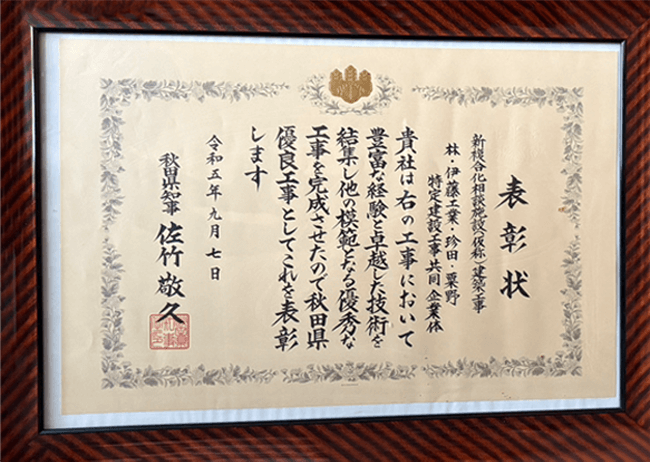 表彰状
新複合化相談施設(仮称)建築工事
林・伊藤工業・珍田・粟野
特定建設工事共同企業体
貴社は右の工事において
豊富な経験と卓越した技術を
結集し他の模範となる優秀な
工事を完成させたので秋田県
優良工事としてこれを表彰
します
令和五年九月七日
秋田県知事 佐竹敬久